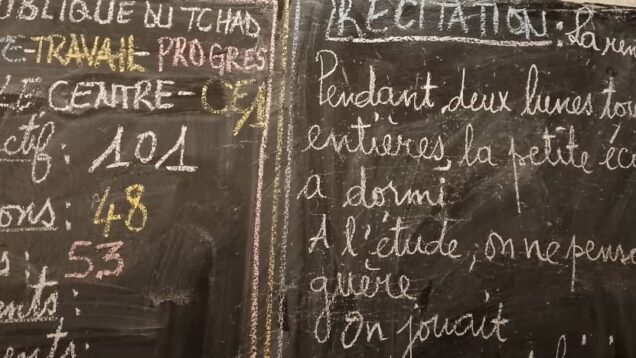 PUBLIQUE DU TCHAD
E-TRAVAIL-PROGRES
LE CENTRE-CE1
ctif: 101
ons: 48
s: 53
ents:
ents:
RECITATION: La ren
Pendant deux lunes tou
entières, la petite éc
a dormi.
A l'étude, on ne pense
guère
On jouait